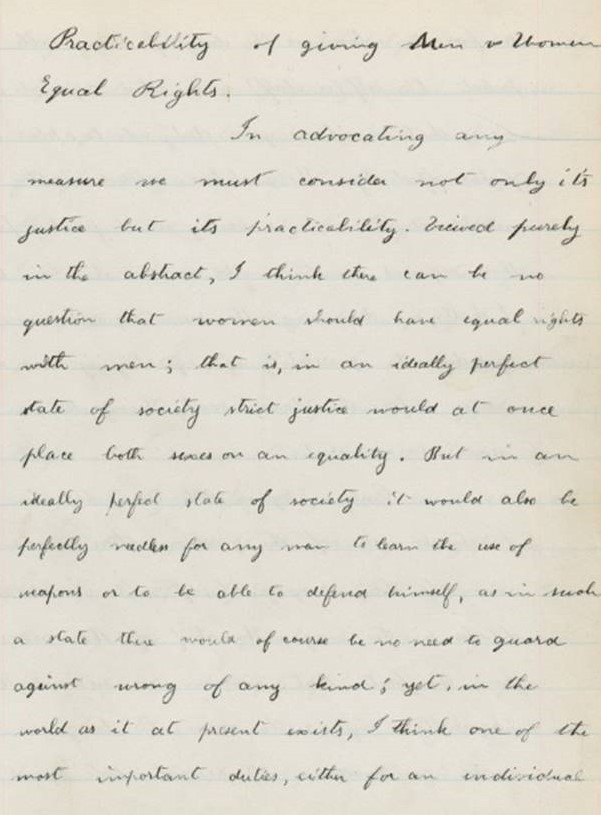 Practicability of giving Men & Women
Equal Rights.
In advocating any
measure we must consider not only it's
justice but its practicability. Viewed purely
in the abstract, I think there can be no
question that women should have equal rights
with men; that is, in an ideally perfect
state of society strict justice would at once
place both sexes on an equality. But in an
ideally perfect state of society it would also be
perfectly needless for any man to learn the use of
weapons or to be able to defend himself, as in such
a state there would of course be no need to guard
against wrong of any kind; yet, in the
world as it at present exists, I think one of the
most important duties, either for an individual